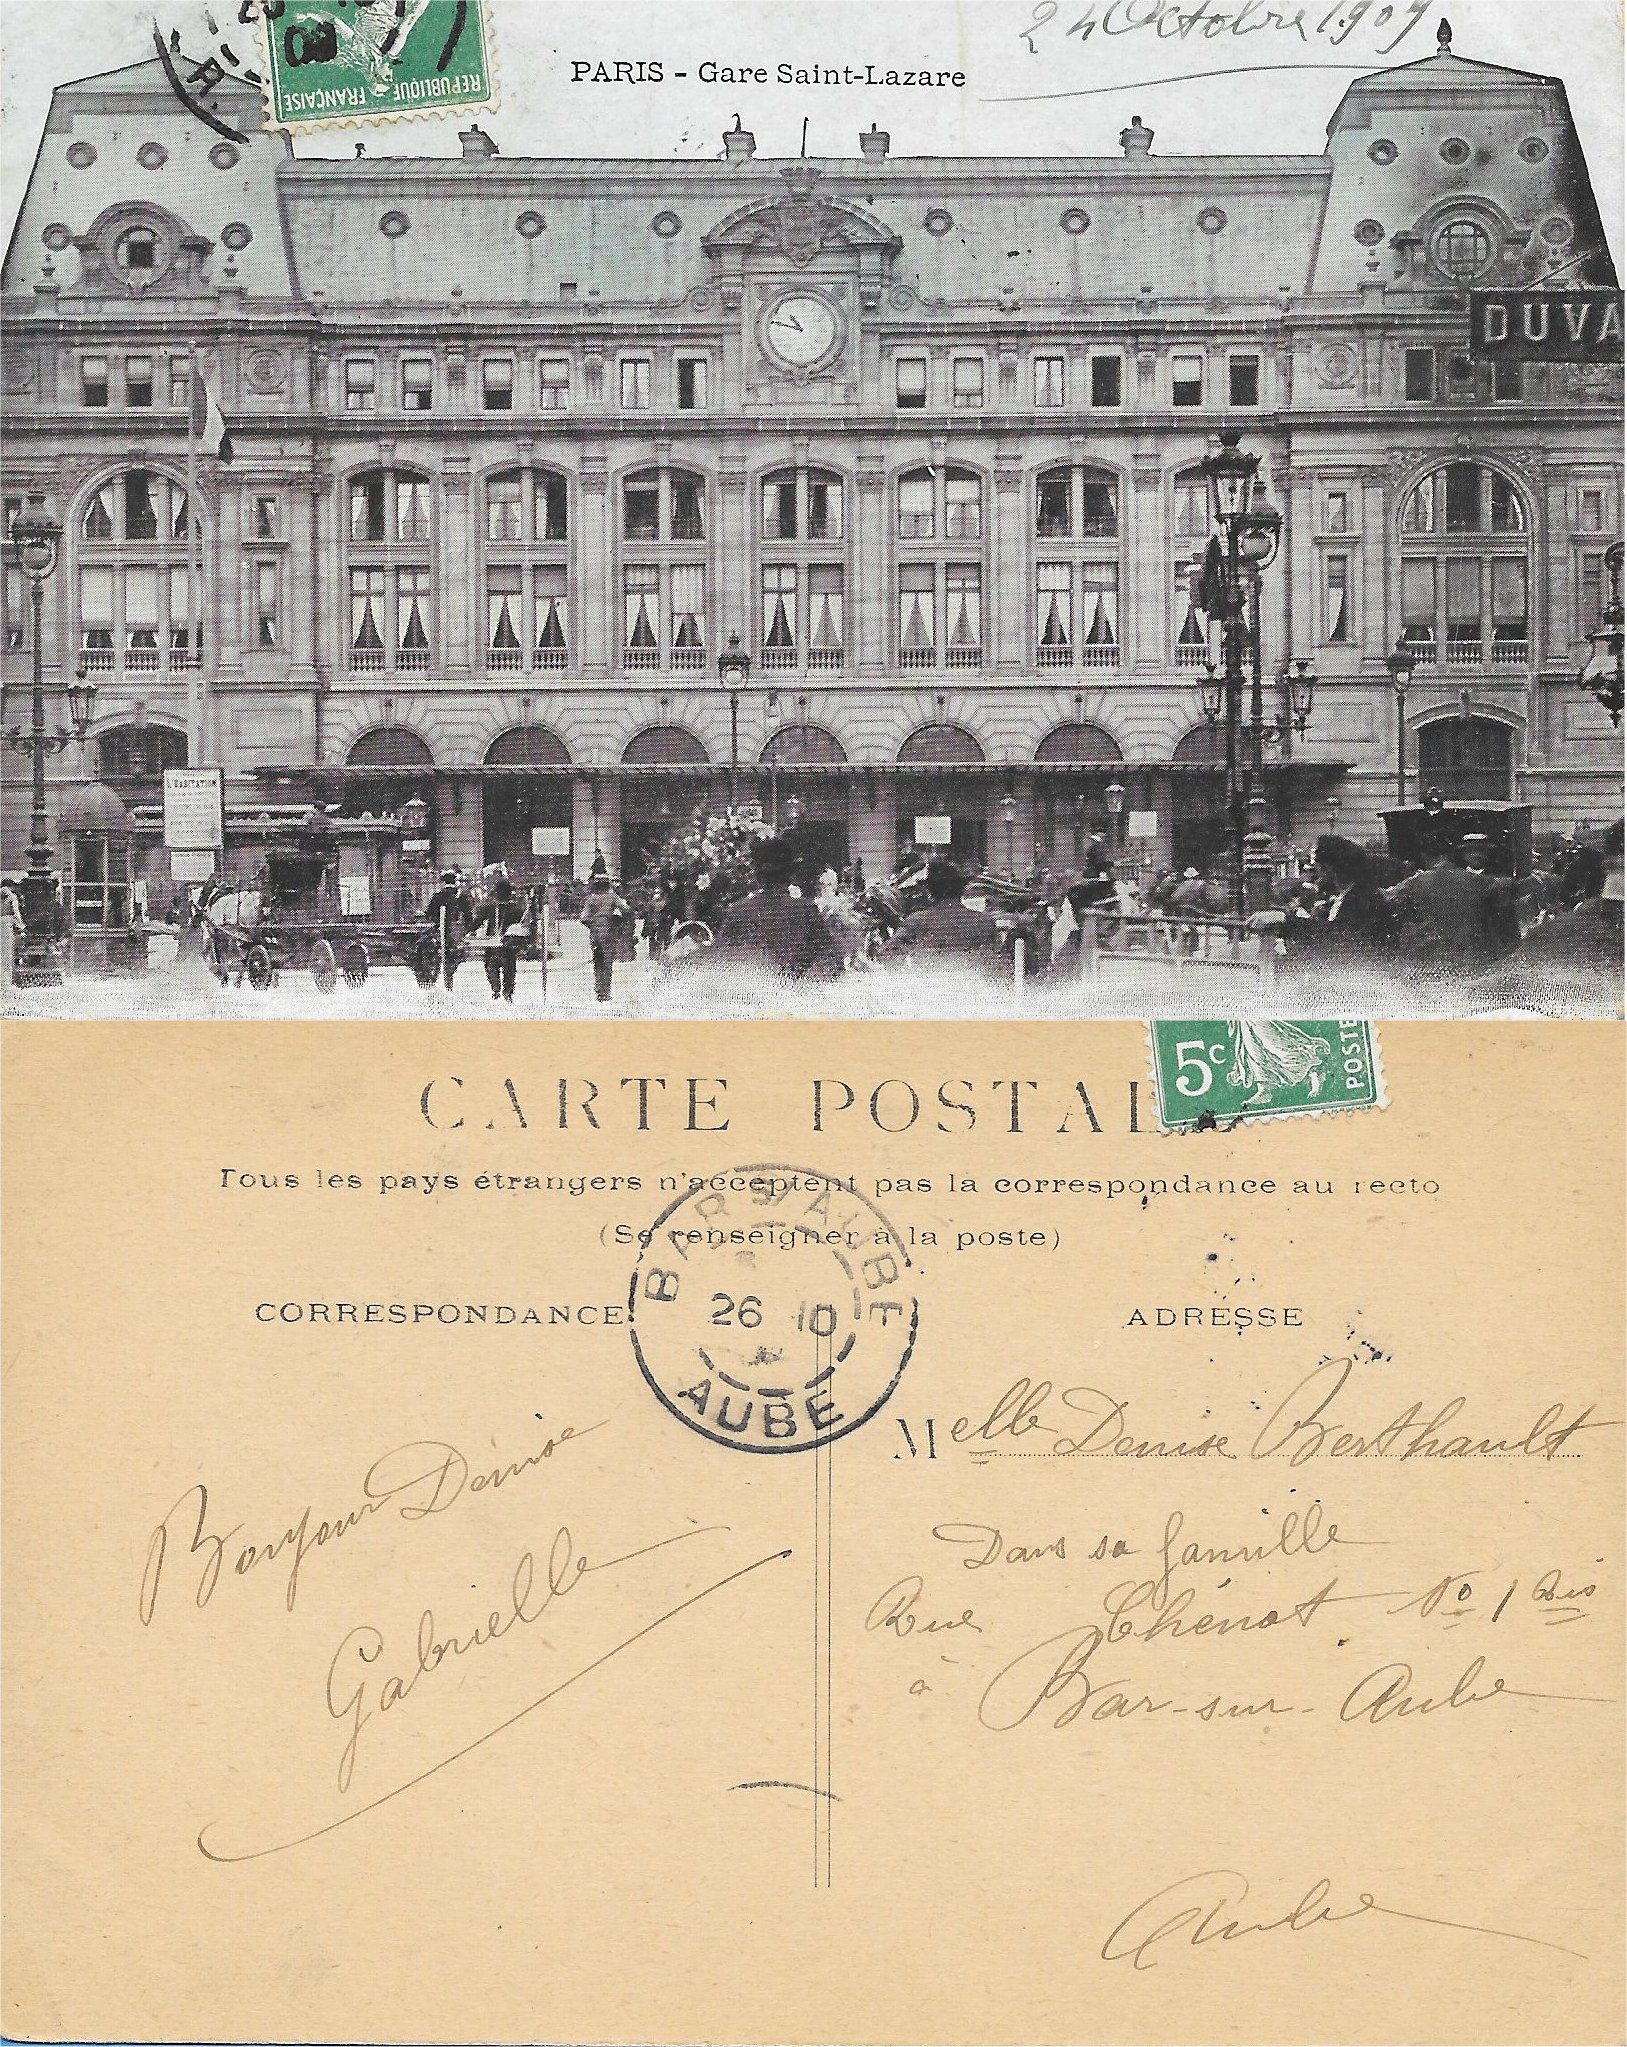 24 Octobre 1909
PARIS - Gare Saint-Lazare
R.
09
REPUBLIQUE FRANÇAISE
DUVA
L'HABITATION
CARTE POSTALE
5c
POSTE
Tous les pays étrangers n'acceptent pas la correspondance au recto
(Se renseigner à la poste)
BAR S/ AUBE
26 10
AUBE
CORRESPONDANCE
ADRESSE
Bonjour Denise
Gabrielle
Melle Denise Berthault
Dans sa famille
Rue Chénot No 1 Bis
à Bar-sur-Aube
Aube